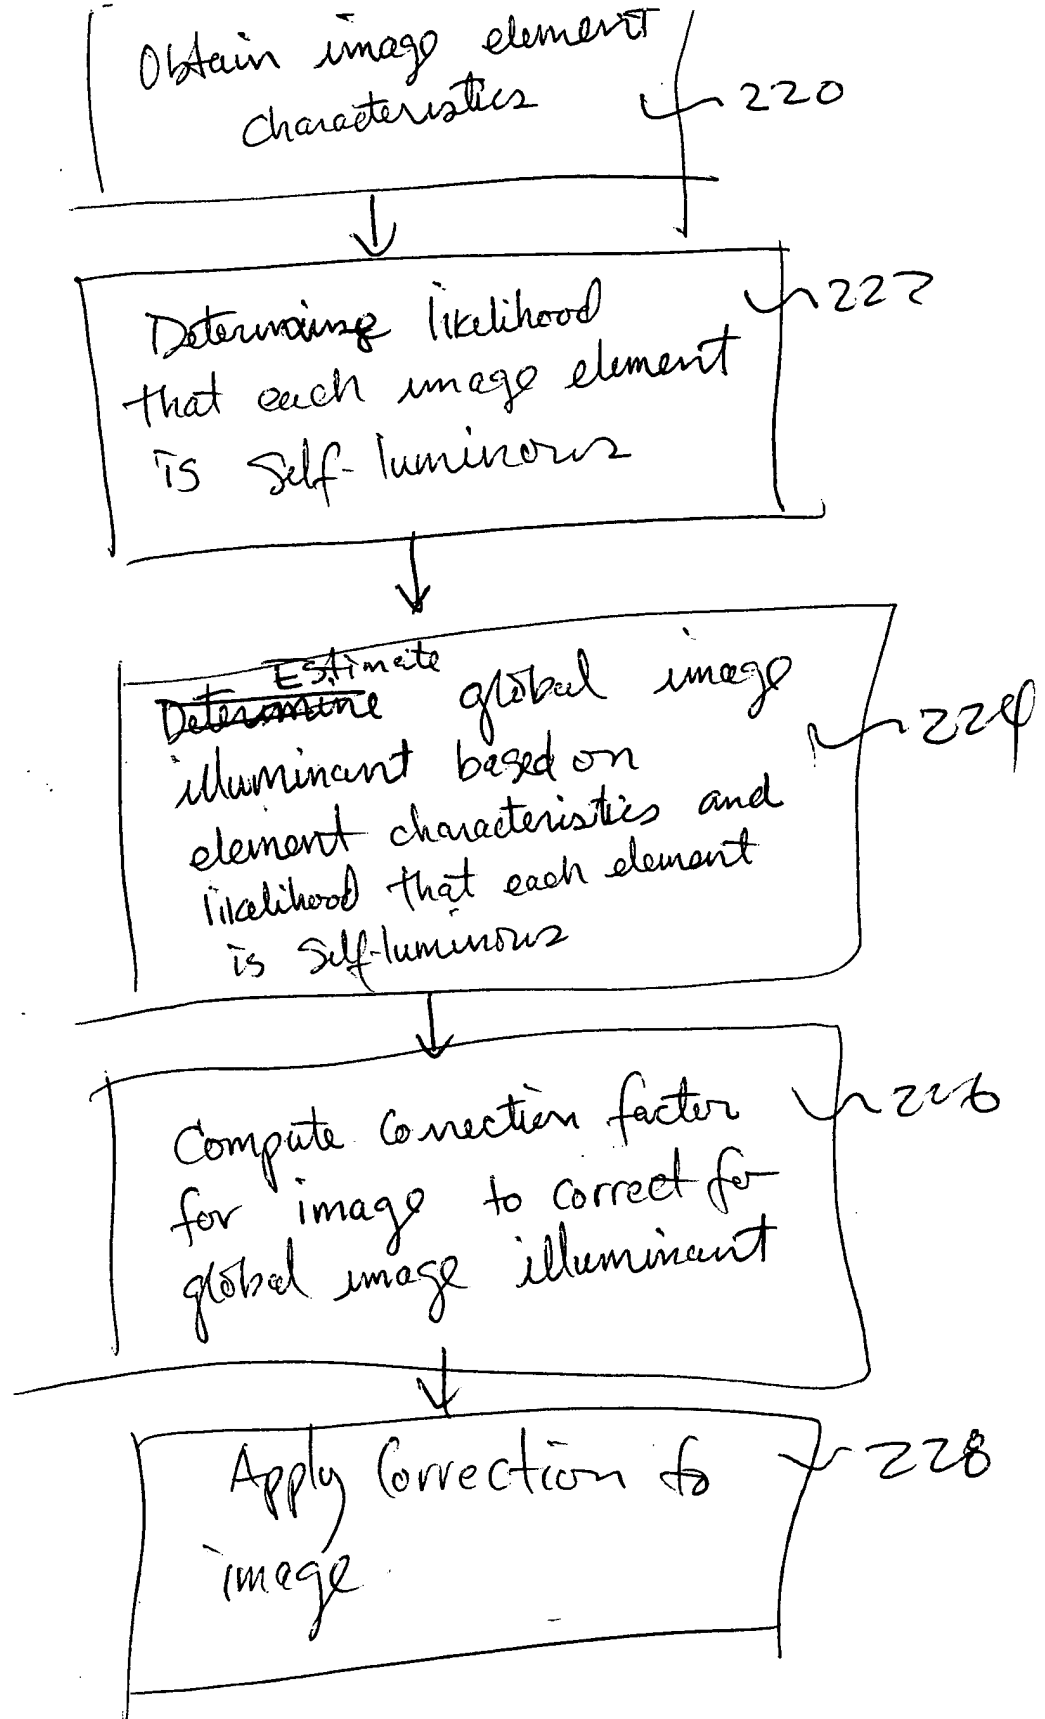 Obtain image element
characteristics
220
Determine likelihood
that each image element
is self-luminous
222
Estimate
Determine global image
illuminant based on
element characteristics and
likelihood that each element
is self-luminous
224
Compute correction factor
for image to correct for
global image illuminant
226
Apply Correction to
image
228